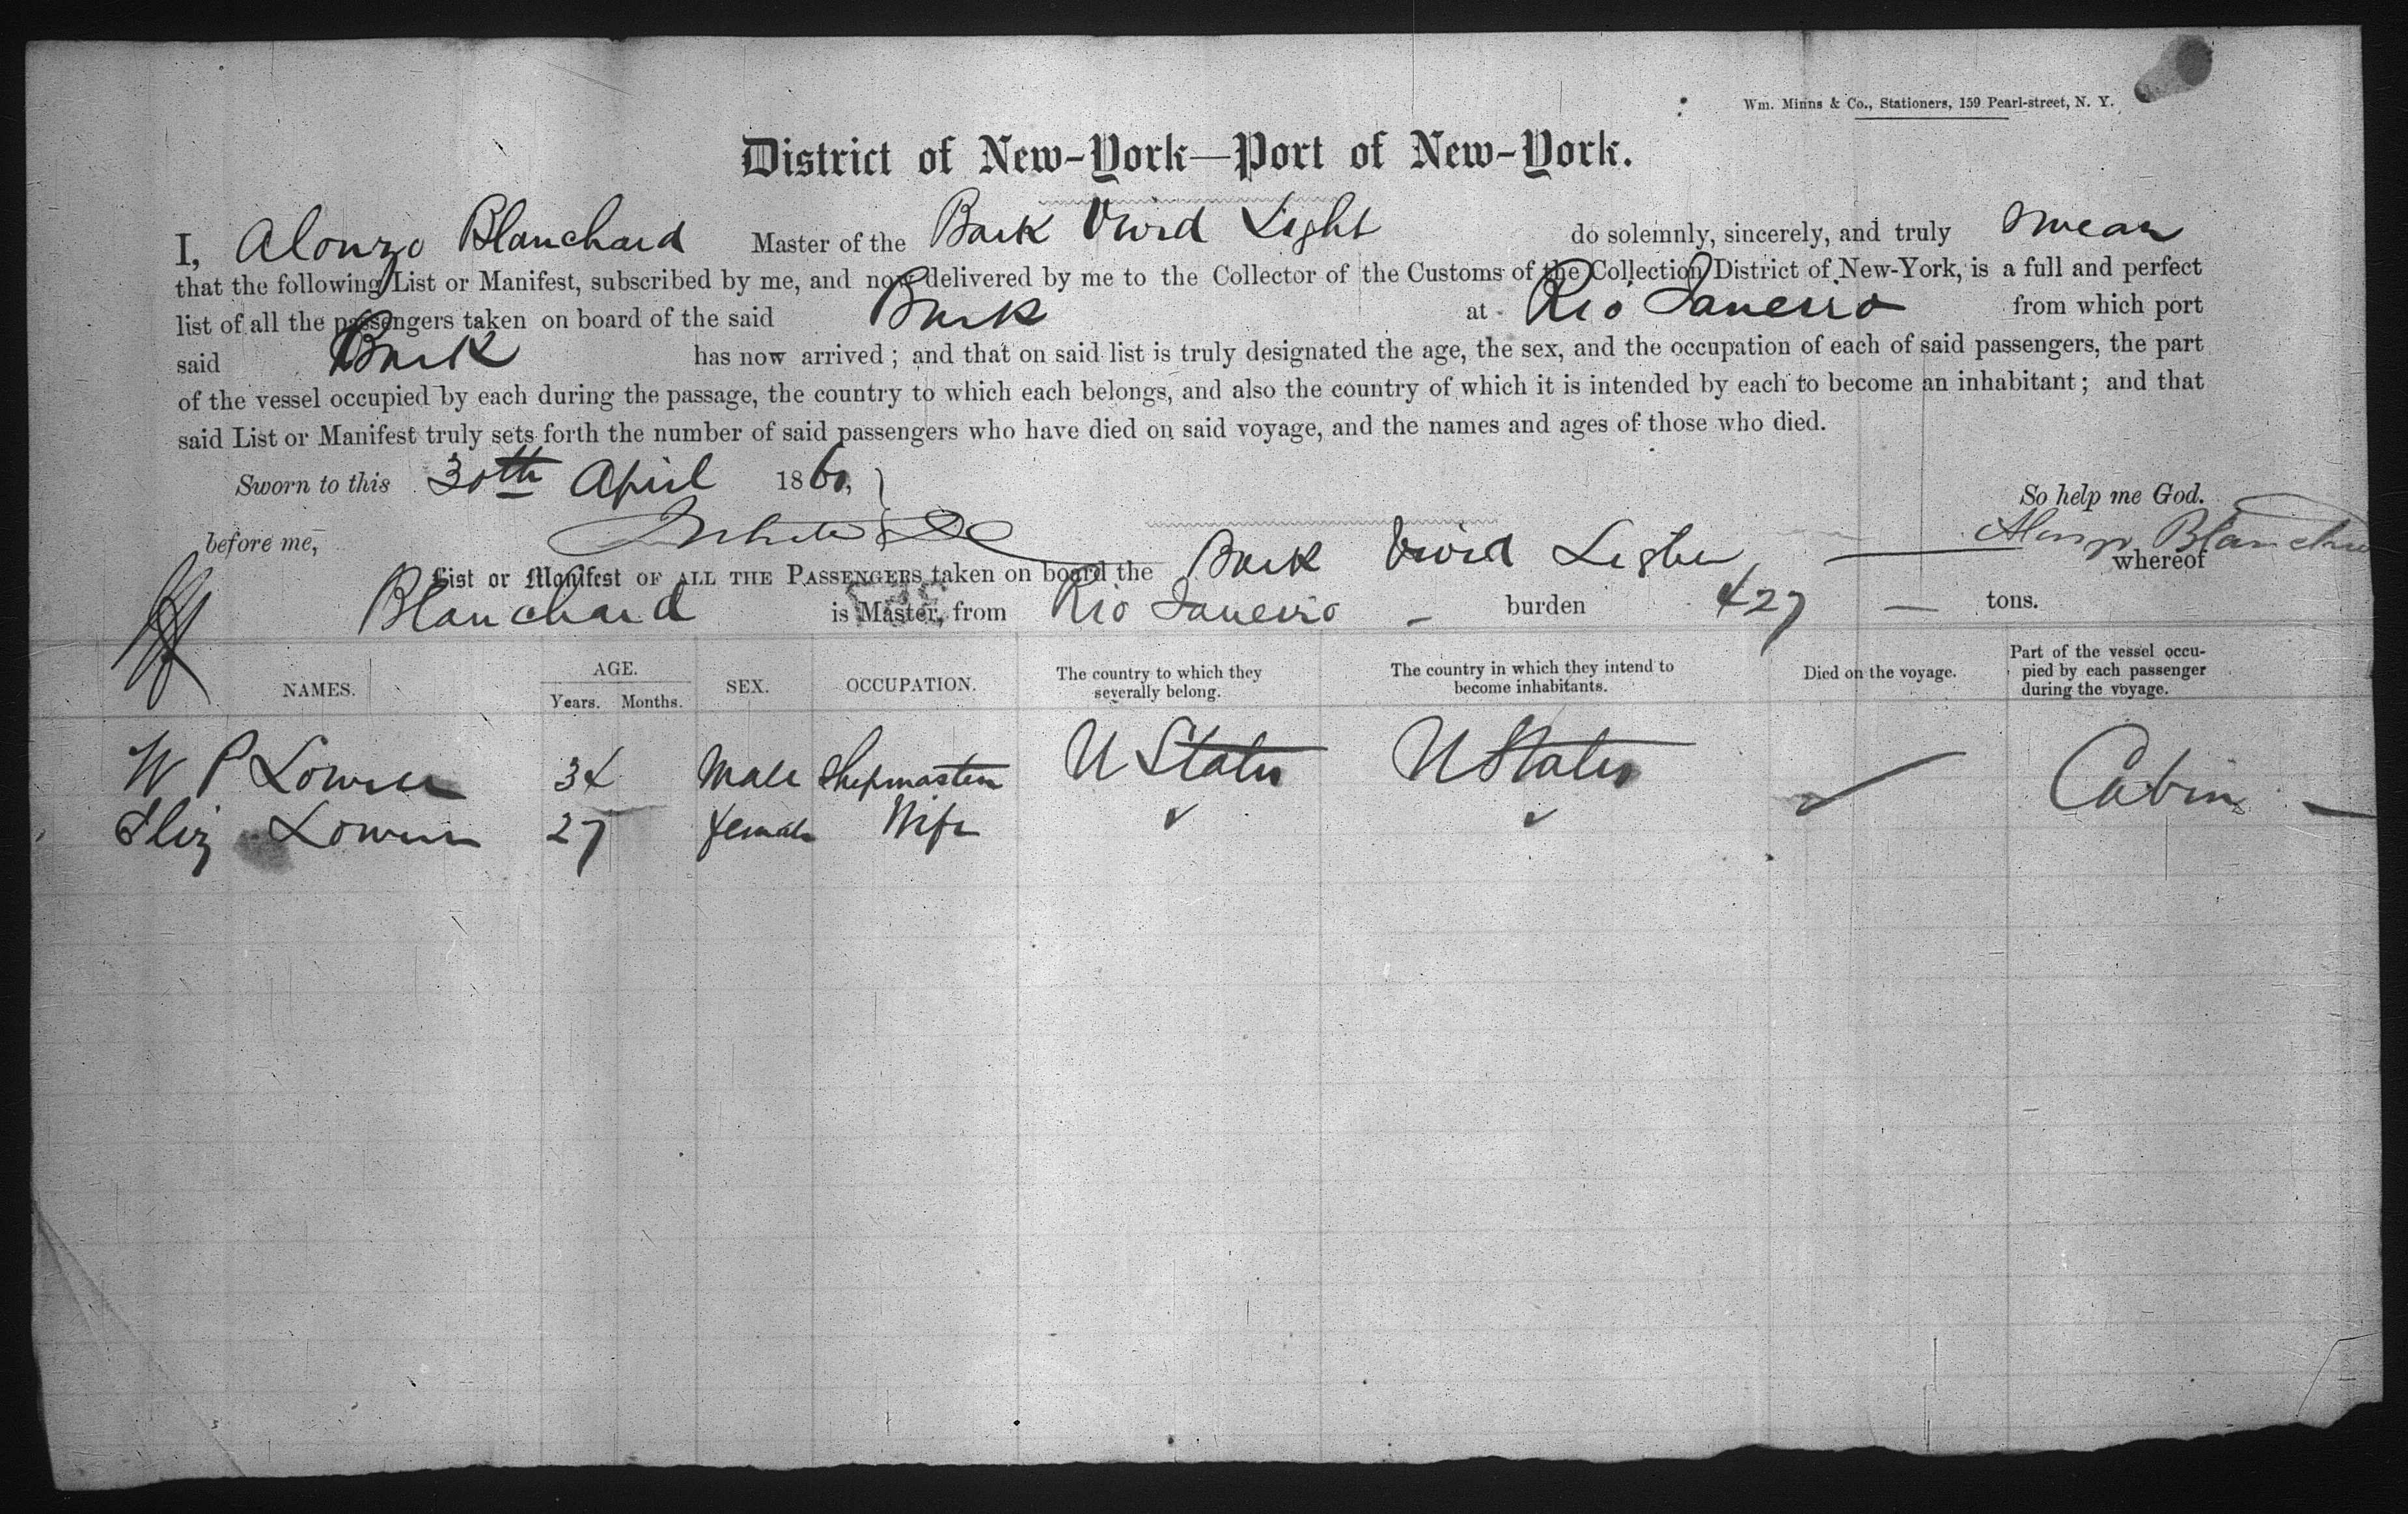 Wm. Minns & Co., Stationers, 159 Pearl-street, N. Y.
District of New-York—Port of New-York.
I, Alonzo Blanchard Master of the Bark Vivid Light do solemnly, sincerely, and truly swear
that the following List or Manifest, subscribed by me, and now delivered by me to the Collector of the Customs of the Collection District of New-York, is a full and perfect
list of all the passengers taken on board of the said Bark at Rio Janeiro from which port
said Bark has now arrived; and that on said list is truly designated the age, the sex, and the occupation of each of said passengers, the part
of the vessel occupied by each during the passage, the country to which each belongs, and also the country of which it is intended by each to become an inhabitant; and that
said List or Manifest truly sets forth the number of said passengers who have died on said voyage, and the names and ages of those who died.
Sworn to this 30th April 1860,
So help me God.
before me, Alonzo Blanchard
List or Manifest OF ALL THE PASSENGERS taken on board the Bark Vivid Light whereof
Blanchard is Master, from Rio Janeiro - burden 427 — tons.
NAMES. AGE. Years. Months. SEX. OCCUPATION. The country to which they severally belong. The country in which they intend to become inhabitants. Died on the voyage. Part of the vessel occupied by each passenger during the voyage.
W P 34 Male Shipmaster U States U States Cabin
Eliz 27 female Wife